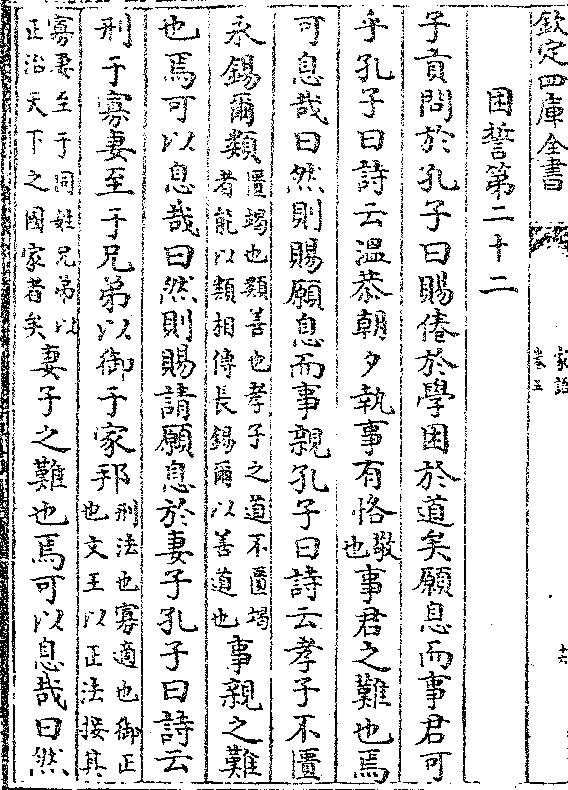 欽定四庫全書
家語
卷五
困誓第二十二
子貢問於孔子曰賜倦於學困於道矣願息而事君可
乎孔子曰詩云溫恭朝夕執事有恪敬也事君之難也焉
可息哉曰然則賜願息而事親孔子曰詩云孝子不匱
永錫爾類匱竭也類善也孝子之道不匱竭者能以類相傳長錫爾以善道也事親之難
也焉可以息哉曰然則賜請願息於妻子孔子曰詩云
刑于寡妻至于兄弟以御于家邦刑法也寡適也御正也文王以正法接其
寡妻至于同姓兄弟以正治天下之國家者矣妻子之難也焉可以息哉曰然